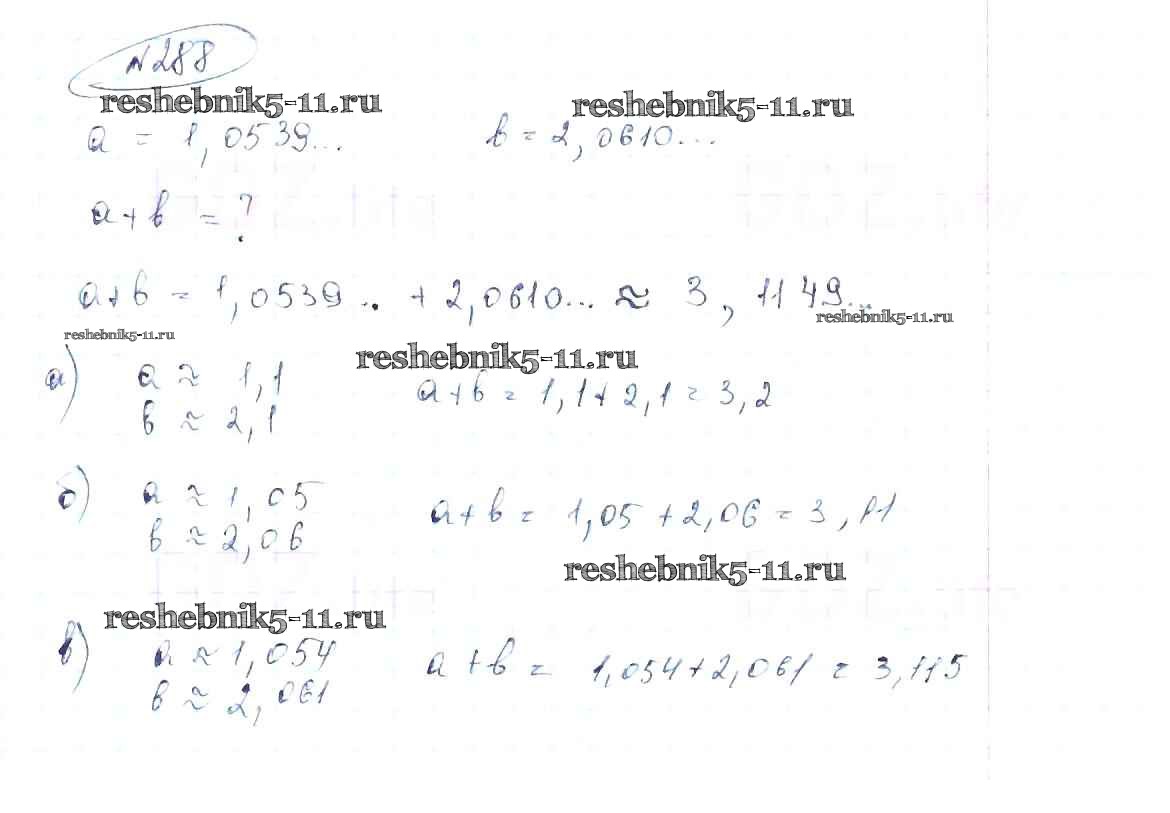 №288
reshebnik5-11.ru reshebnik5-11.ru
a = 1,0539... b = 2,0610...
a+b = ?
a+b = 1,0539.. + 2,0610... ≈ 3,1149...
reshebnik5-11.ru
reshebnik5-11.ru reshebnik5-11.ru
а) a ≈ 1,1 a+b = 1,1+2,1=3,2
b ≈ 2,1
б) a ≈ 1,05 a+b = 1,05+2,06=3,11
b ≈ 2,06
reshebnik5-11.ru
reshebnik5-11.ru
в) a ≈ 1,054 a+b = 1,054+2,061 = 3,115
b ≈ 2,061